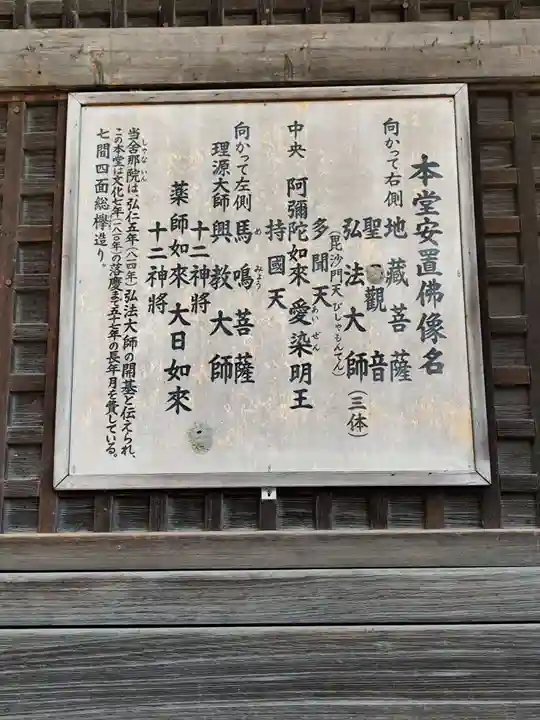 本堂安置佛像名
向かって右側 地藏菩薩
聖觀音
弘法大師（三体）
（毘沙門天びしゃもんてん）
多聞天
中央 阿彌陀如來 愛染明王
あいぜん
持國天
向かって左側 馬鳴菩薩
めみょう
理源大師 興教大師
十二神將
薬師如來 大日如來
十二神將
しゃないん
当舎那院は、弘仁五年（八一四年）弘法大師の開基と伝えられ、
この本堂は文化七年（一八一〇年）の落慶まで五十七年の長年月を費している。
七間四面総欅造り。